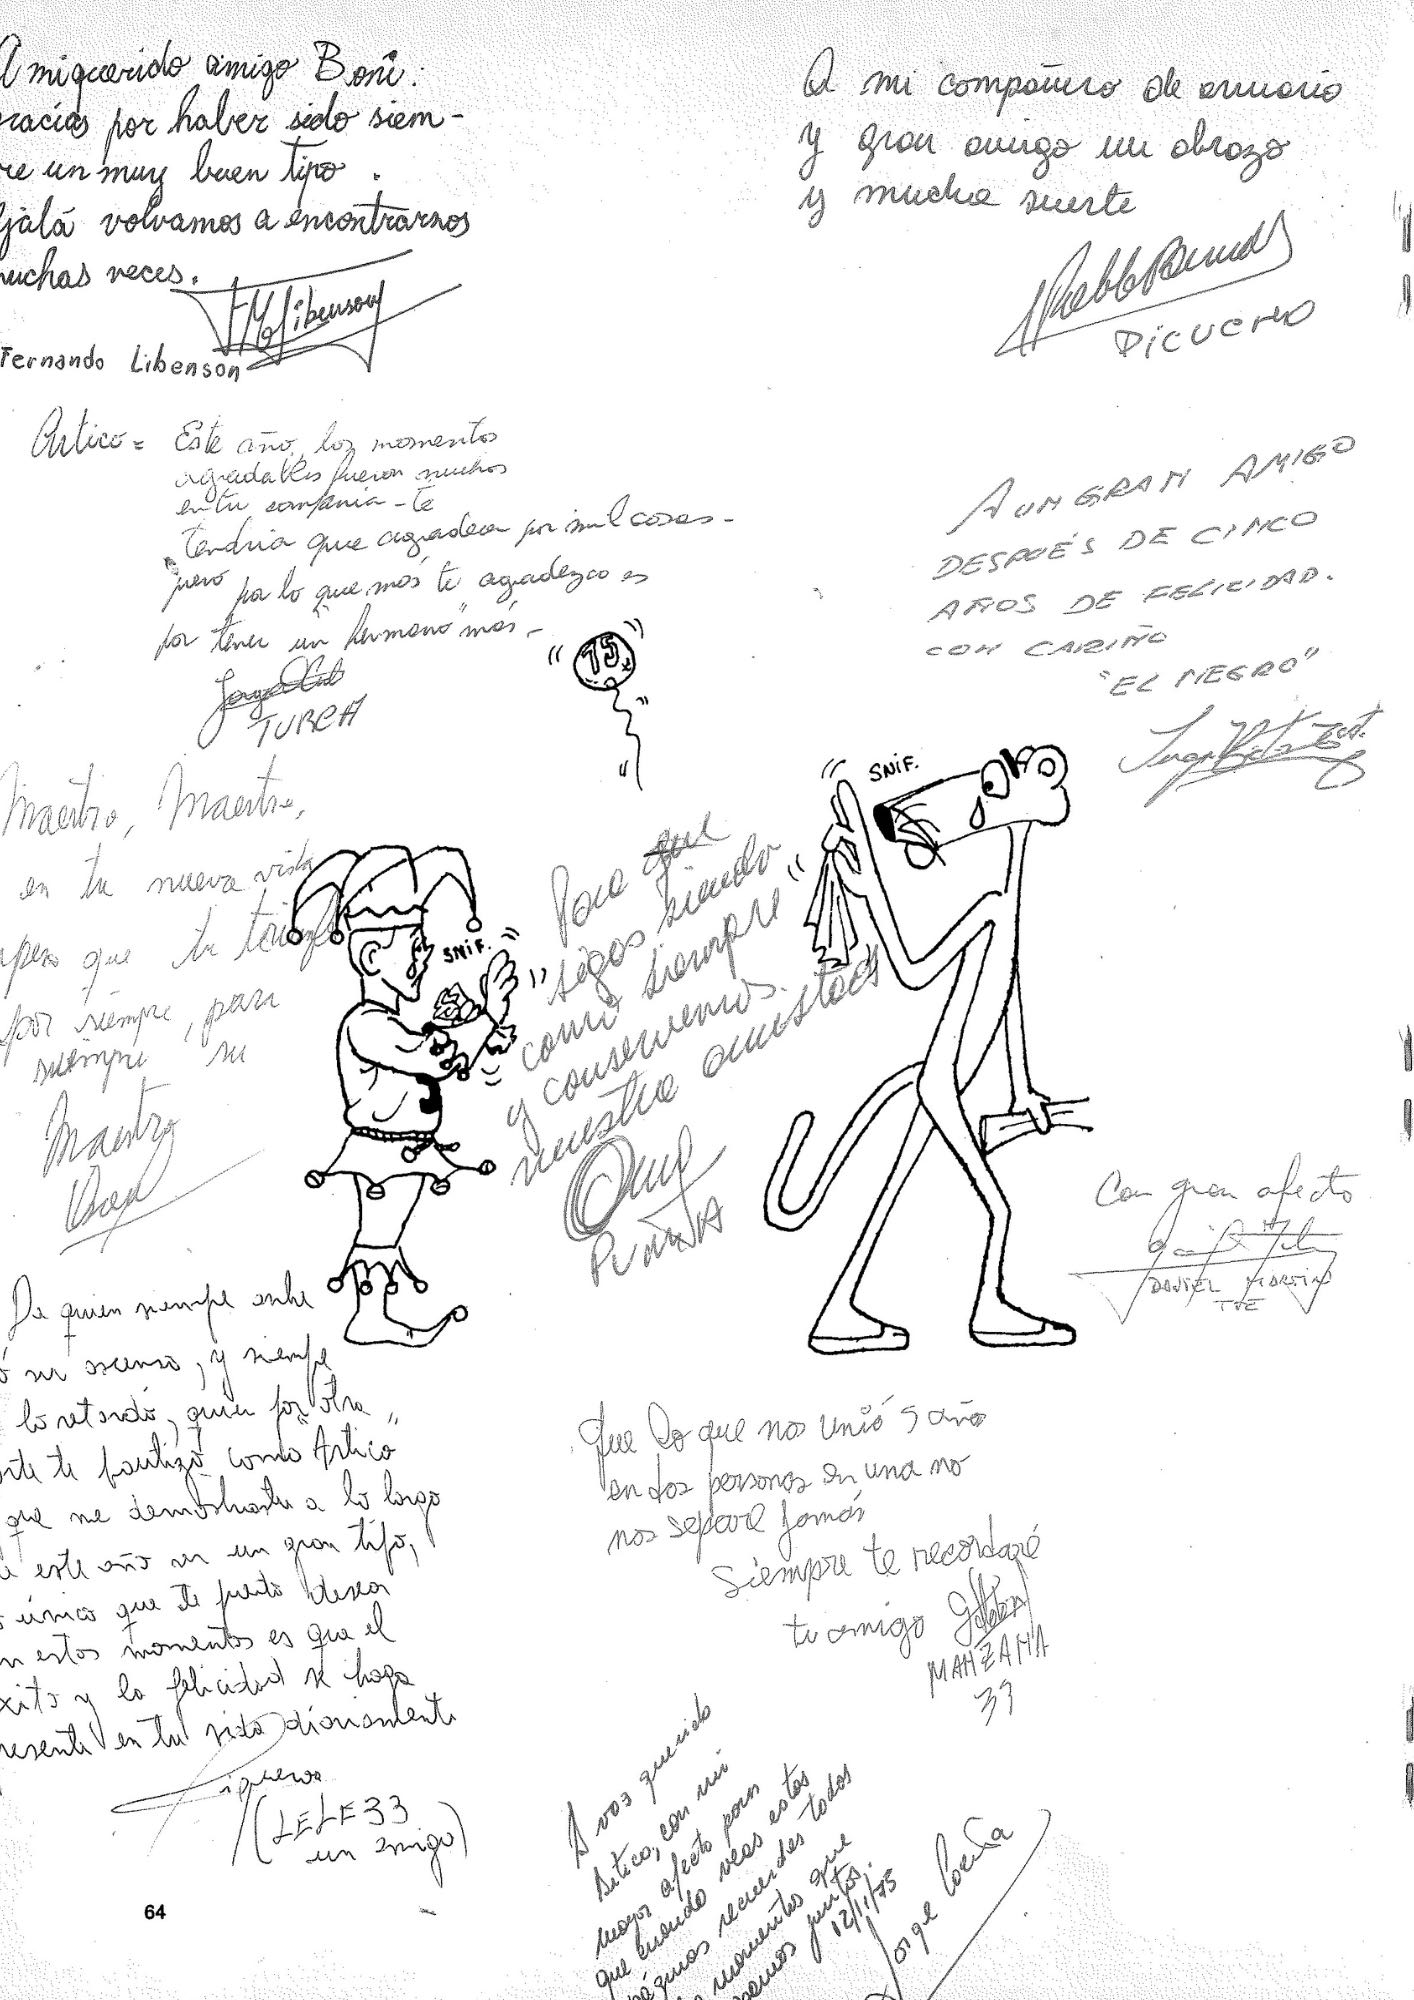 A mi querido amigo Boni:
racias por haber sido siem-
re un muy buen tipo.
jalá volvamos a encontrarnos
uchas veces.
Libenson
Fernando Libenson
A mi compañero de anuario
y gran amigo un abrazo
y mucha suerte
PICUCHO
Artico = Este año, los momentos
agradables fueron muchos
en tu compania - te
tendria que agradecer por mil cosas -
pero por lo que más te agradezco es
por tener un "hermano" más -
TURCA
A UN GRAN AMIGO
DESPUÉS DE CINCO
AÑOS DE FELICIDAD.
CON CARIÑO
"EL NEGRO"
75
SNIF.
Maestro, Maestro,
en tu nueva vida
pero que tu
por siempre, para
siempre su
Maestro
SNIF.
Para que
sigas siendo
como siempre
y conservemos
nuestra amistad
Con gran afecto
DANIEL MARTIN
De quien siempre enhe
ó su ascenso, y siempre
lo retardó, quien por otra
rte te bautizó como "Artico"
que me demostraste a lo largo
e este año ser un gran tipo,
o único que te puedo desear
n estos momentos es que el
xito y la felicidad se haga
resente en tu vida diariamente
(LELE 33
un amigo)
Que lo que nos unió 5 año
en dos personas en una no
nos separe jamás
Siempre te recordaré
tu amigo
MANZANA
33
A vos querido
Artico, con mi
mayor afecto para
que cuando veas estas
páginas recuerdes todos
momentos que
juntos.
12/11/75
Jorge
64